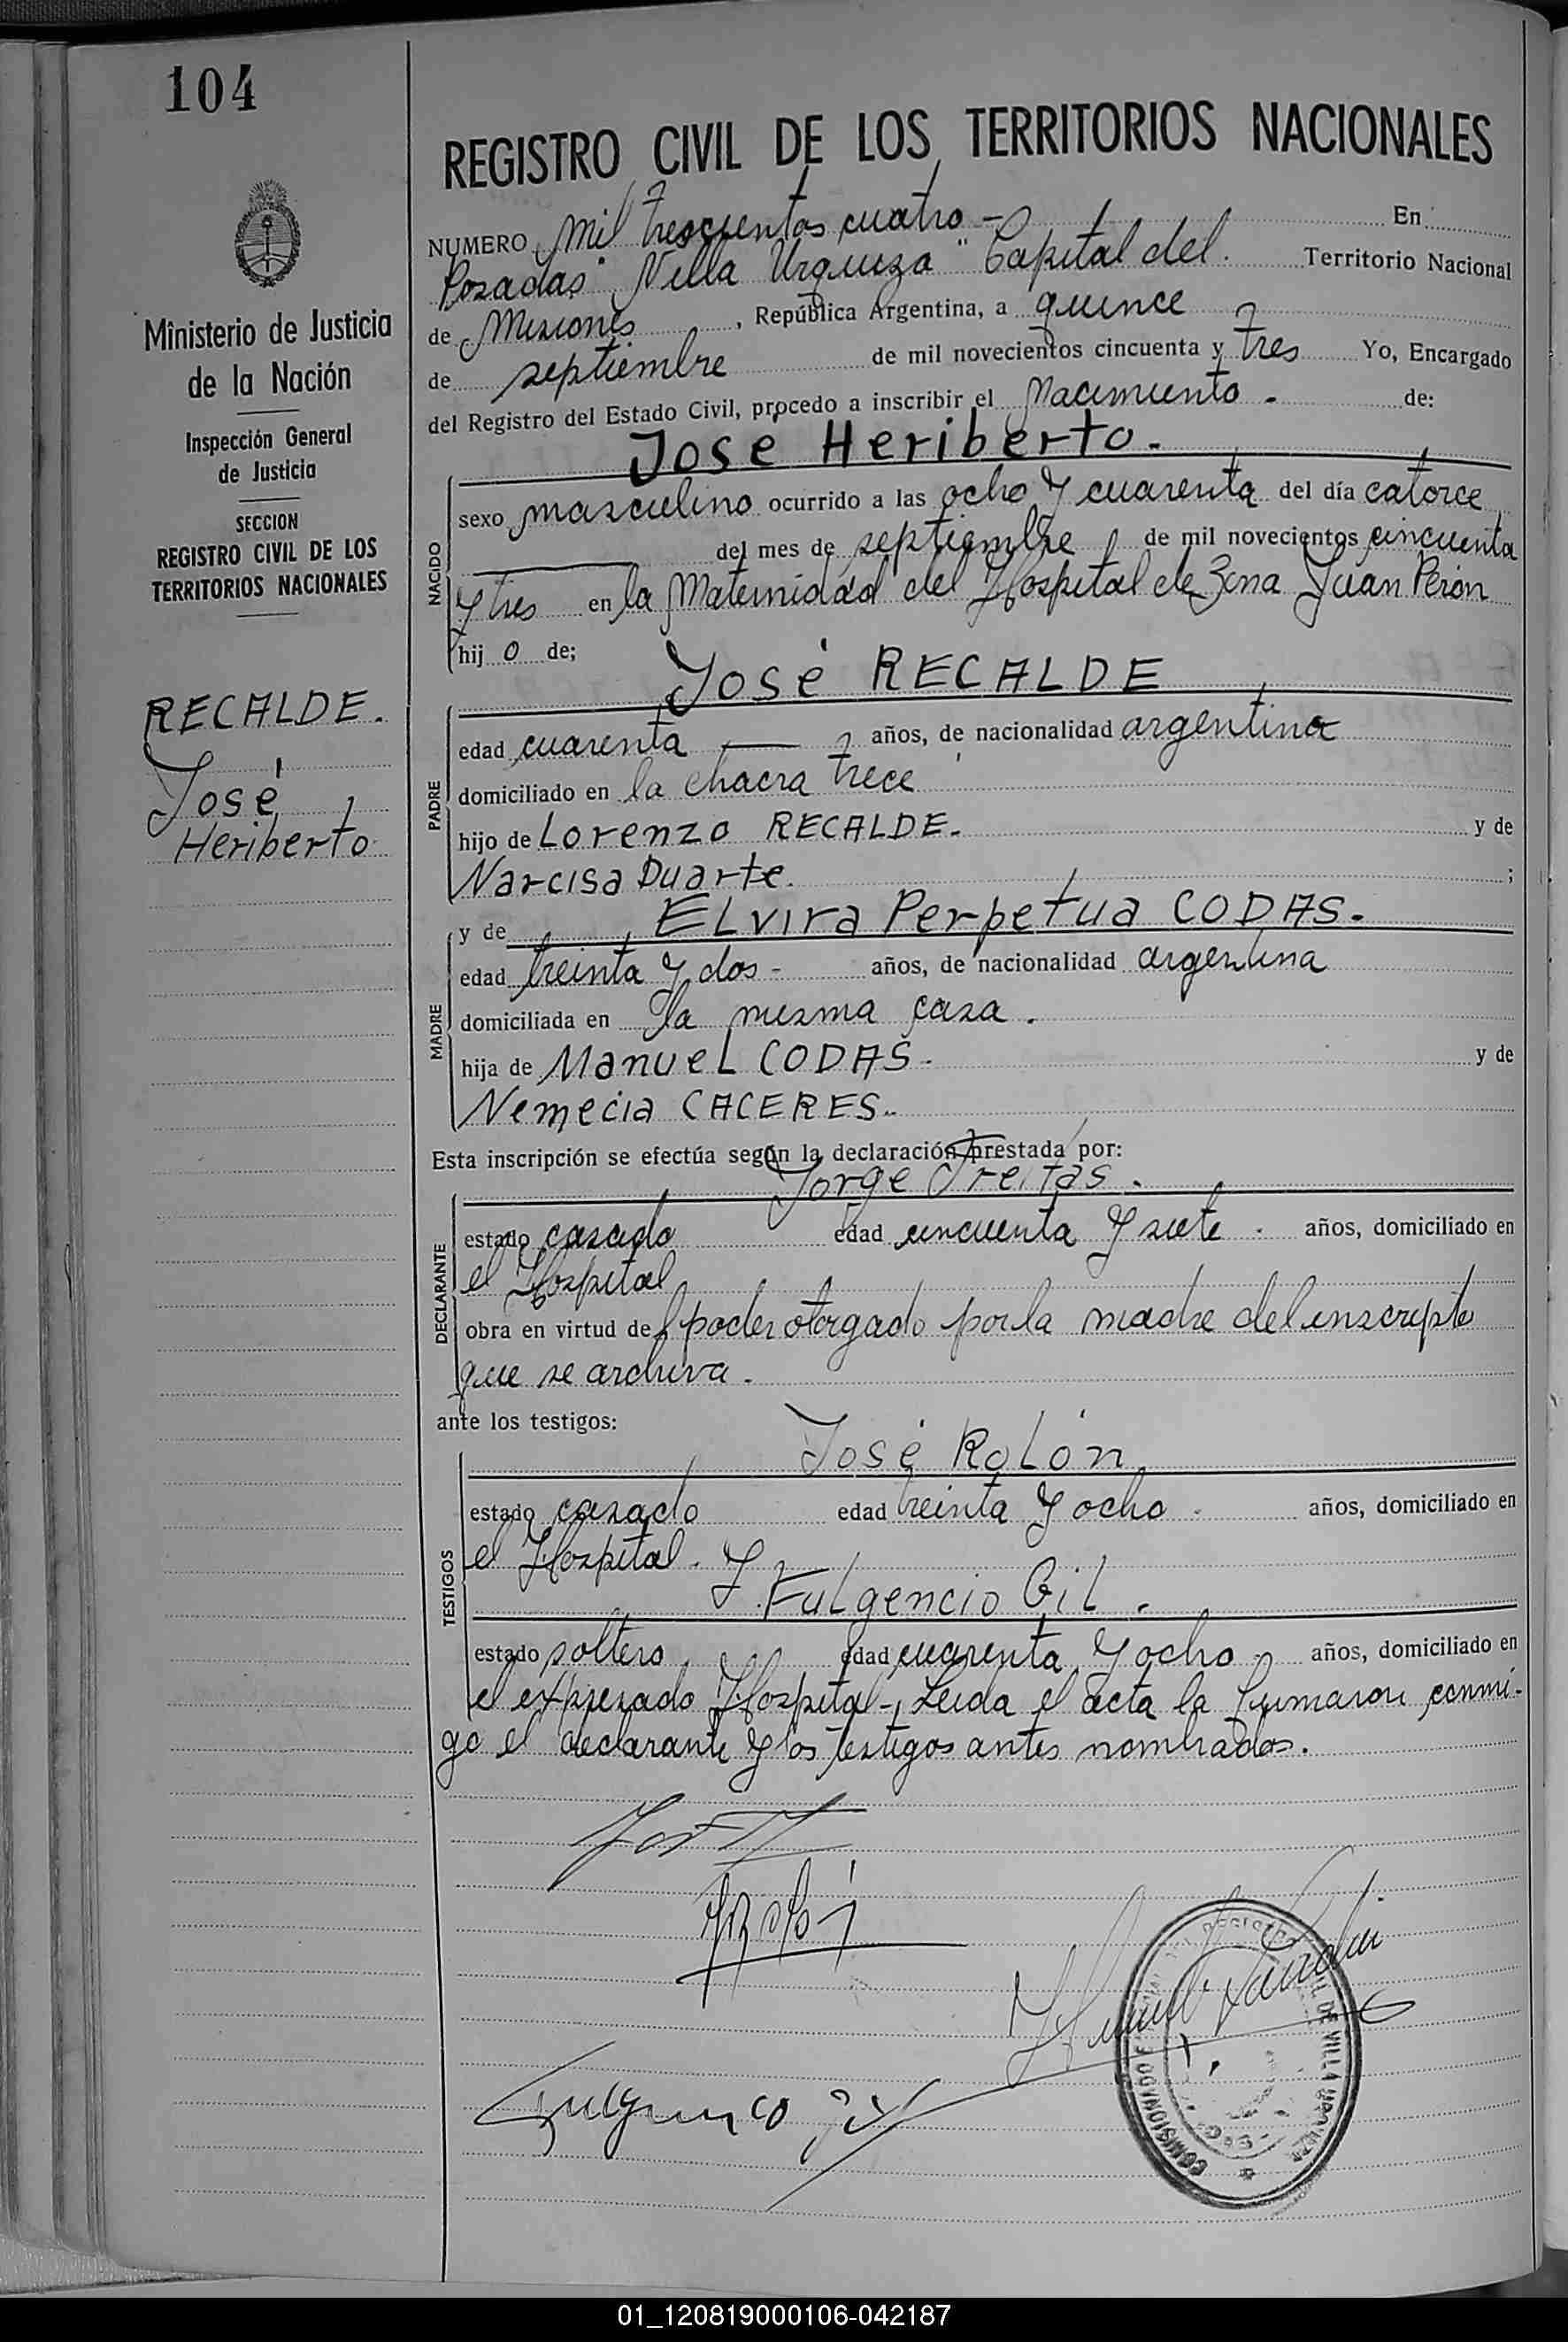 104
REGISTRO CIVIL DE LOS TERRITORIOS NACIONALES
Ministerio de Justicia
de la Nación
Inspección General
de Justicia
SECCION
REGISTRO CIVIL DE LOS
TERRITORIOS NACIONALES
RECALDE.
José
Heriberto
NUMERO Mil trescientos cuatro - En
Posadas "Villa Urquiza" Capital del Territorio Nacional
de Misiones, República Argentina, a quince
de septiembre de mil novecientos cincuenta y tres Yo, Encargado
del Registro del Estado Civil, procedo a inscribir el Nacimiento - de:
José Heriberto.
NACIDO
sexo masculino ocurrido a las ocho y cuarenta del día catorce
del mes de septiembre de mil novecientos cincuenta
y tres en la Maternidad del Hospital de Zona Juan Perón
hij o de;
José RECALDE
PADRE
edad cuarenta años, de nacionalidad argentina
domiciliado en la chacra trece
hijo de Lorenzo RECALDE. y de
Narcisa Duarte. ;
y de ELvira Perpetua CODAS.
MADRE
edad treinta y dos - años, de nacionalidad argentina
domiciliada en la misma casa.
hija de ManueL CODAS - y de
Nemecia CACERES..
Esta inscripción se efectúa según la declaración prestada por:
Jorge Freitas.
DECLARANTE
estado casado edad cincuenta y siete - años, domiciliado en
el Hospital
obra en virtud del poder otorgado por la madre del inscripto
que se archiva.
ante los testigos:
José Rolón
TESTIGOS
estado casado edad treinta y ocho - años, domiciliado en
el Hospital. y
Fulgencio Gil.
estado soltero edad cuarenta y ocho - años, domiciliado en
el expresado Hospital-, Leida el acta la firmaron conmi-
go el declarante y los testigos antes nombrados.
COMISIONADO VILLA URQUIZA
01_120819000106-042187